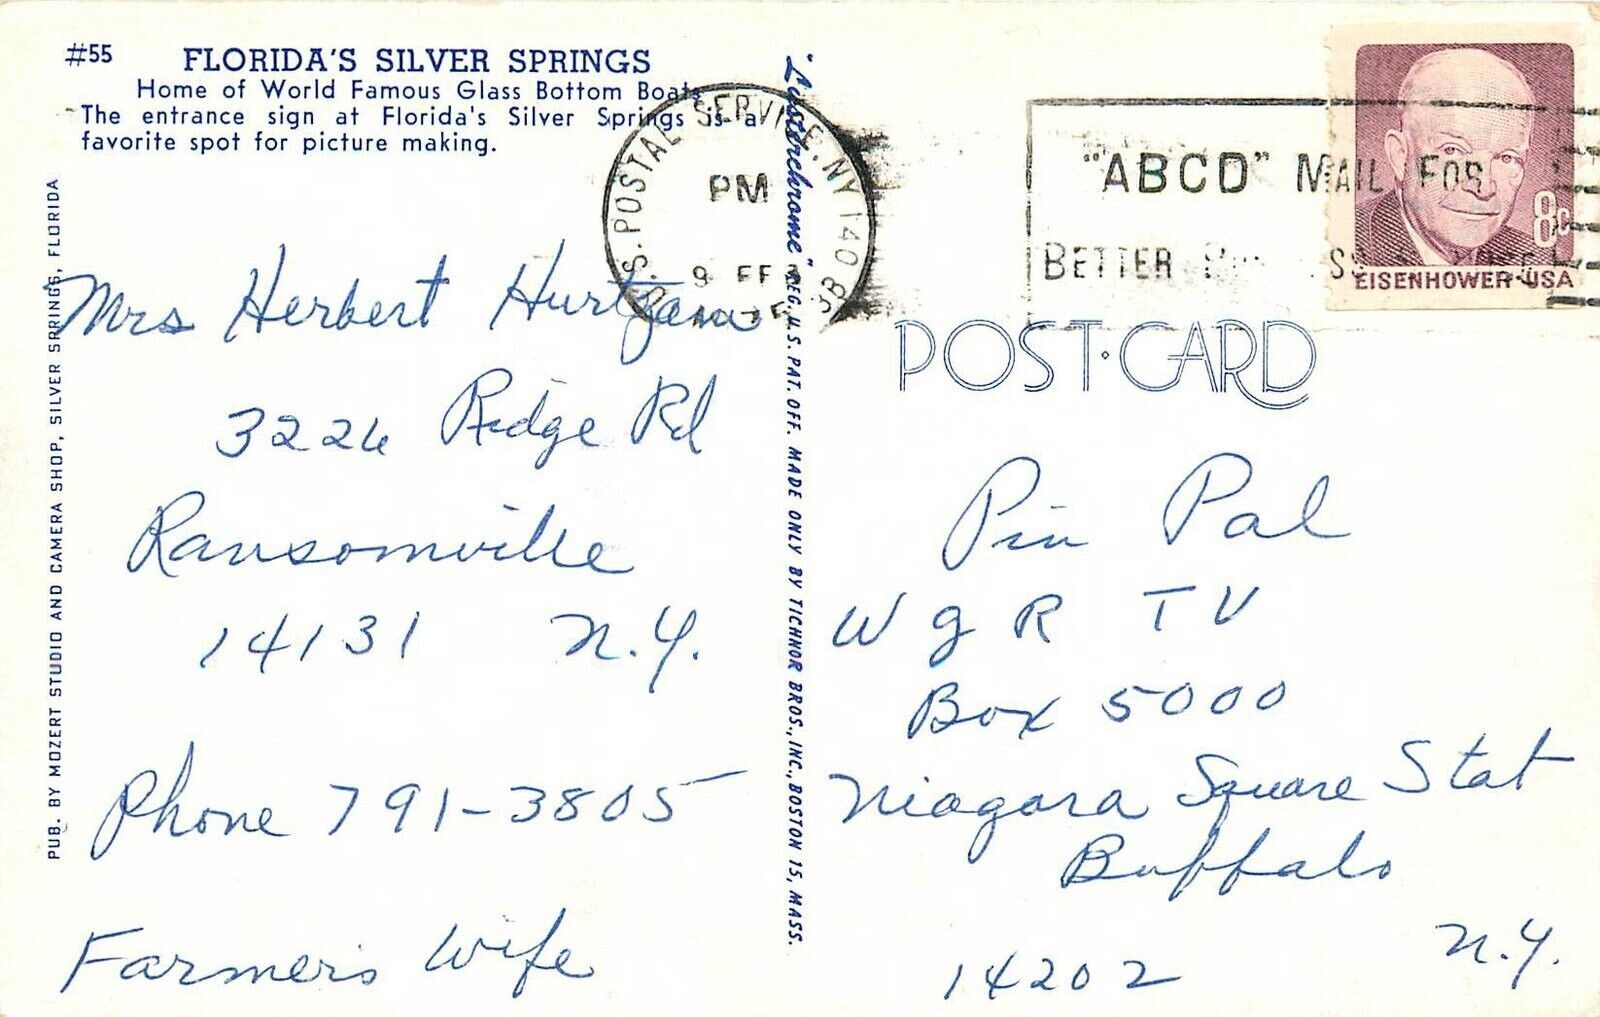 #55 FLORIDA'S SILVER SPRINGS
Home of World Famous Glass Bottom Boats
The entrance sign at Florida's Silver Springs is a
favorite spot for picture making.
PUB. BY MOZERT STUDIO AND CAMERA SHOP, SILVER SPRINGS, FLORIDA
Mrs Herbert Hurtgam
3226 Ridge Rd
Ransomville
14131 N.Y.
Phone 791-3805
Farmers Wife
"Lusterchrome" REG. U.S. PAT. OFF. MADE ONLY BY TICHNOR BROS., INC., BOSTON 15, MASS.
U.S. POSTAL SERVICE. NY 140
PM
9 FE
"ABCD" MAIL FOR
BETTER
8c
EISENHOWER·USA
POST·CARD
Pin Pal
W G R T V
Box 5000
Niagara Square Stat
Buffalo
N.Y.
14202